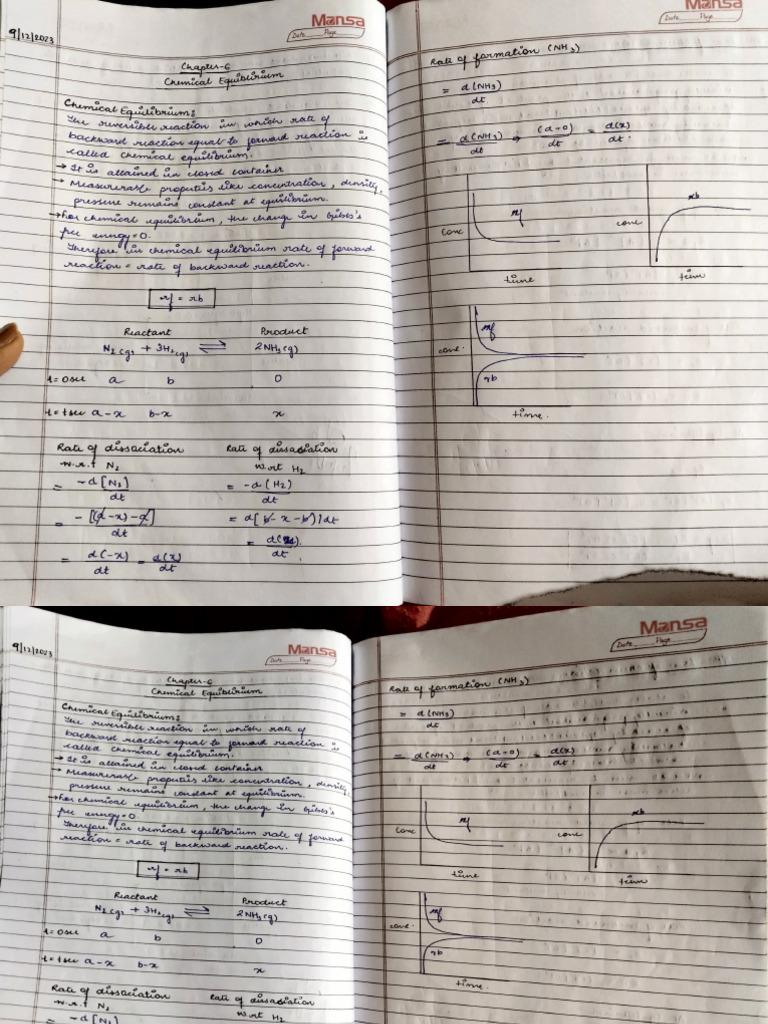 9/12/2023
Mansa
Date Page
Chapter-6
Chemical Equilibrium
Chemical Equilibrium:
The reversible reaction in which rate of
backward reaction equal to forward reaction is
called chemical equilibrium.
→ It is attained in closed container
→ Measurerable properties like concentration, density,
pressure remains constant at equilibrium.
→ For chemical equilibrium, the change in Gibbs's
free energy = 0.
Therefore in chemical equilibrium rate of forward
reaction = rate of backward reaction.
rf = rb
Reactant Product
N2(g) + 3H2(g) ⇌ 2NH3(g)
t=0sec a b 0
t=tsec a-x b-x x
Rate of dissociation Rate of dissociation
w.r.t N2 w.r.t H2
= -d[N2]/dt = -d(H2)/dt
= -[(a-x)-a]/dt = d[b-x-b)]dt
= d(-x)/dt = d(x)/dt = d(x)/dt
Mansa
Date Page
Rate of formation (NH3)
= d(NH3)/dt
= d(NH3)/dt → (d-0)/dt = d(x)/dt
rf
conc
time
rb
conc
time
rf
conc.
rb
time.
9/12/2023
Mansa
Date Page
Chapter-6
Chemical Equilibrium
Chemical Equilibrium:
The reversible reaction in which rate of
backward reaction equal to forward reaction is
called chemical equilibrium.
→ It is attained in closed container
→ Measurerable properties like concentration, density,
pressure remains constant at equilibrium.
→ For chemical equilibrium, the change in Gibbs's
free energy = 0
Therefore in chemical equilibrium rate of forward
reaction = rate of backward reaction.
rf = rb
Reactant Product
N2(g) + 3H2(g) ⇌ 2NH3(g)
t=0sec a b 0
t=tsec a-x b-x x
Rate of dissociation Rate of dissociation
w.r.t N2 w.r.t H2
= -d[N2]
Mansa
Date Page
Rate of formation (NH3)
= d(NH3)/dt
= d(NH3)/dt → (d-0)/dt = d(x)/dt
rf
conc
time
rb
conc
time
rf
conc.
rb
time.